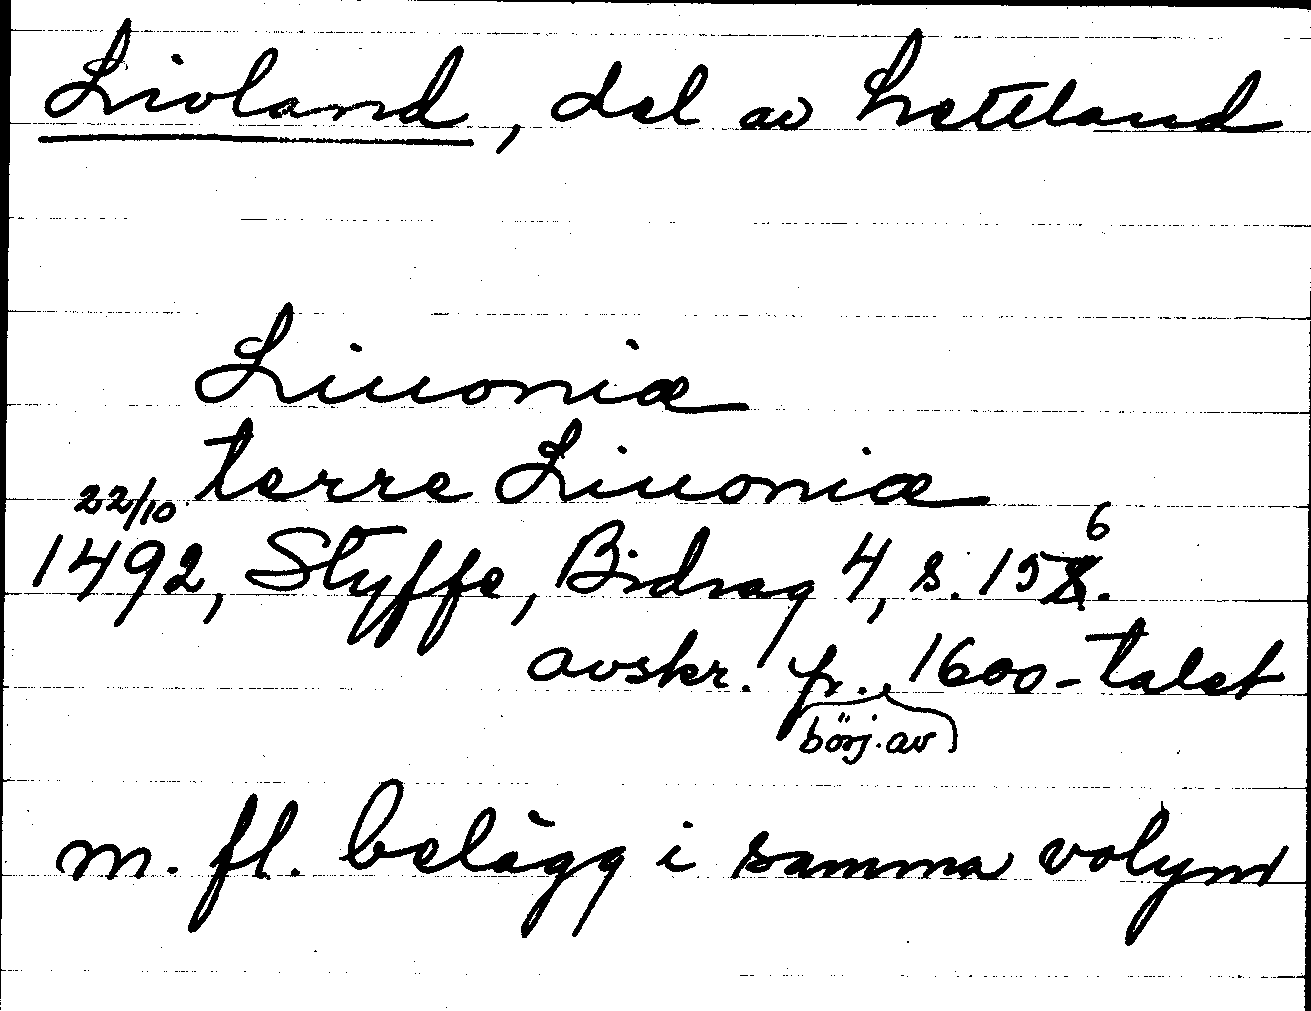 Livland, del av Lettland
Liuoniæ
terre Liuoniæ
22/10 1492, Styffe, Bidrag 4, s. 156.
avskr. fr. börj. av 1600-talet
m. fl. belägg i samma volym